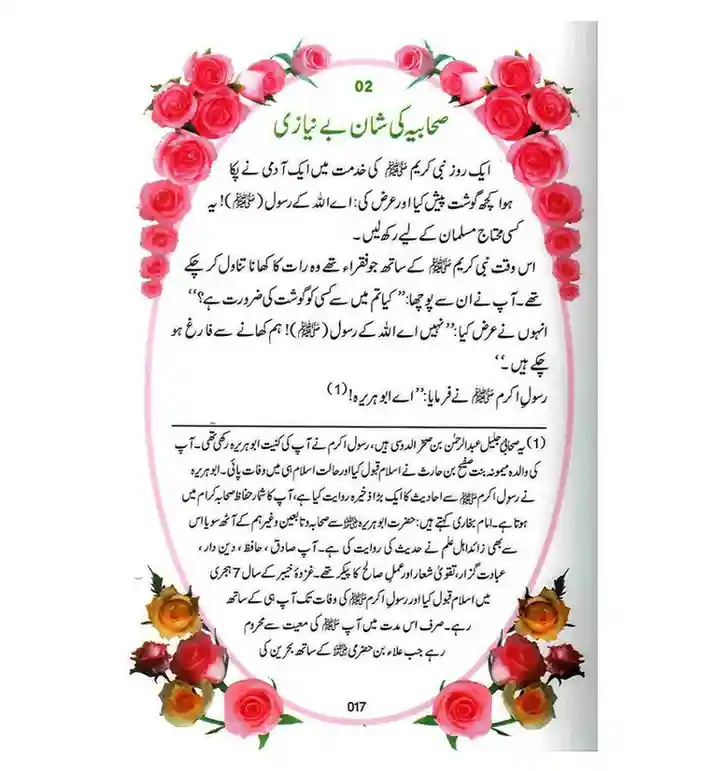 02
صحابیہ کی شان بے نیازی
ایک روز نبی کریم ﷺ کی خدمت میں ایک آدمی نے پکا
ہوا کچھ گوشت پیش کیا اور عرض کی: اے اللہ کے رسول (ﷺ)! یہ
کسی محتاج مسلمان کے لیے رکھ لیں۔
اس وقت نبی کریم ﷺ کے ساتھ جو فقراء تھے وہ رات کا کھانا تناول کر چکے
تھے۔ آپ نے ان سے پوچھا: ’’کیا تم میں سے کسی کو گوشت کی ضرورت ہے؟‘‘
انہوں نے عرض کیا: ’’نہیں اے اللہ کے رسول (ﷺ)! ہم کھانے سے فارغ ہو
چکے ہیں۔‘‘
رسولِ اکرم ﷺ نے فرمایا: ’’اے ابو ہریرہ! (1)
(1) یہ صحابیٔ جلیل عبدالرحمٰن بن صخر الدوسی ہیں، رسول اکرم نے آپ کی کنیت ابو ہریرہ رکھی تھی۔ آپ
کی والدہ میمونہ بنت صفیح بن حارث نے اسلام قبول کیا اور حالت اسلام ہی میں وفات پائی۔ ابو ہریرہ
نے رسول اکرم ﷺ سے احادیث کا ایک بڑا ذخیرہ روایت کیا ہے، آپ کا شمار حفاظ صحابہ کرام میں
ہوتا ہے۔ امام بخاری کہتے ہیں: حضرت ابو ہریرہ رضی اللہ عنہ سے صحابہ و تابعین وغیرہم کے آٹھ سو یا اس
سے بھی زائد اہل علم نے حدیث کی روایت کی ہے۔ آپ صادق، حافظ، دین دار،
عبادت گزار، تقویٰ شعار اور عمل صالح کا پیکر تھے۔ غزوۂ خیبر کے سال 7 ہجری
میں اسلام قبول کیا اور رسولِ اکرم ﷺ کی وفات تک آپ ہی کے ساتھ
رہے۔ صرف اس مدت میں آپ ﷺ کی معیت سے محروم
رہے جب علاء بن حضرمی رضی اللہ عنہ کے ساتھ بحرین کی
017